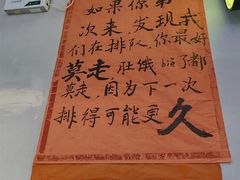 如果你第一
次来,发现我
们在排队,你最好
莫走 肚饿了都
莫走,因为下一次
排得可能更久